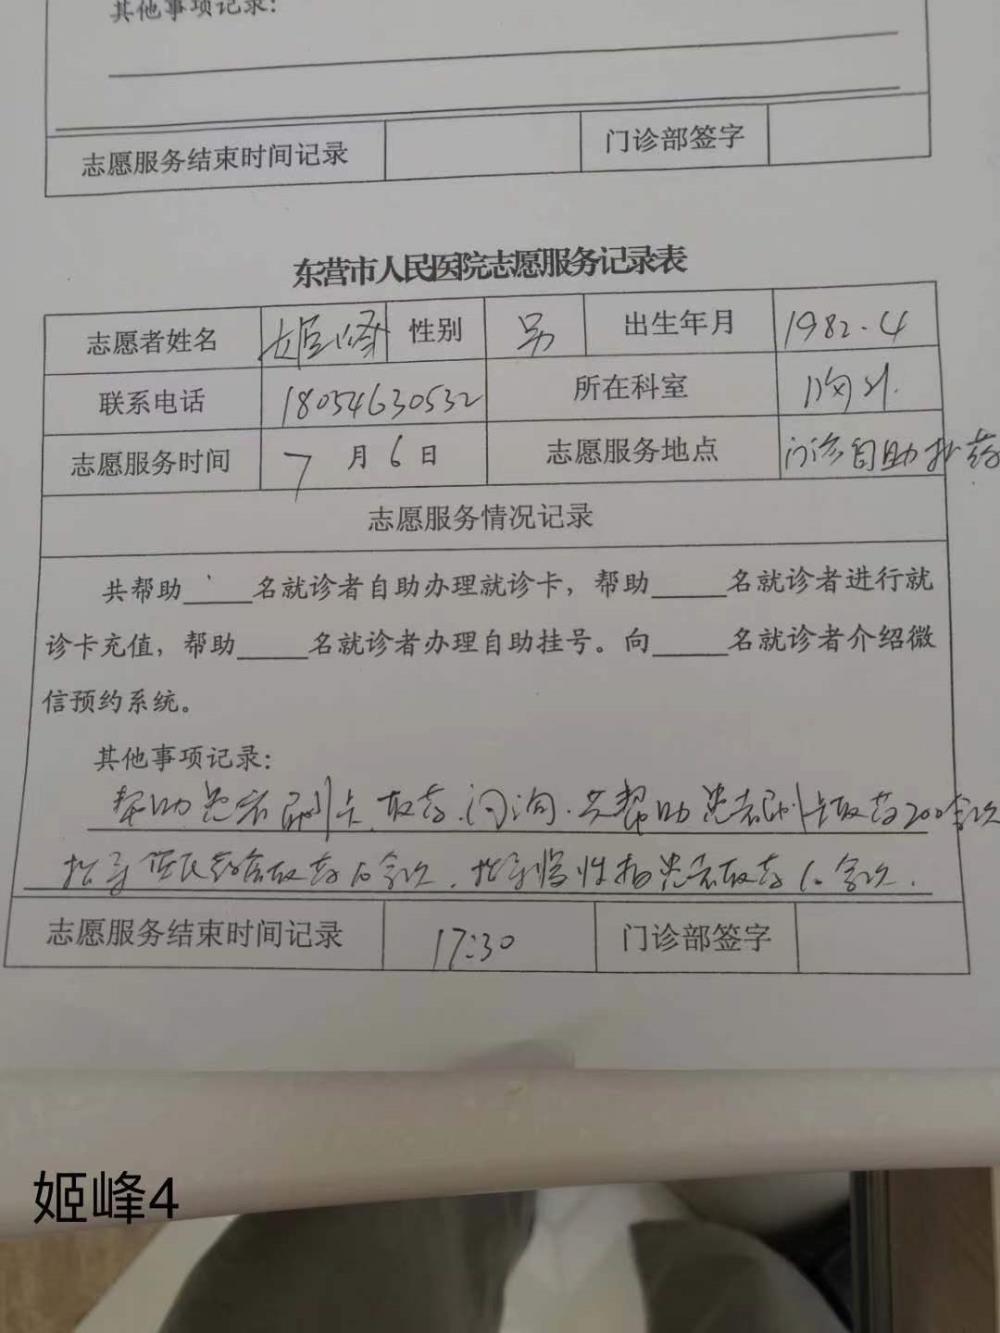 其他事项记录:
志愿服务结束时间记录 门诊部签字
东营市人民医院志愿服务记录表
志愿者姓名 姬峰 性别 男 出生年月 1982.4
联系电话 18054630532 所在科室 胸外
志愿服务时间 7月6日 志愿服务地点 门诊自助取药
志愿服务情况记录
共帮助____名就诊者自助办理就诊卡，帮助____名就诊者进行就
诊卡充值，帮助____名就诊者办理自助挂号。向____名就诊者介绍微
信预约系统。
其他事项记录:
帮助患者刷卡取药.问询.共帮助患者刷卡取药200余次
指导 取药10余次.指导慢性病患者取药10余次.
志愿服务结束时间记录 17:30 门诊部签字
姬峰4